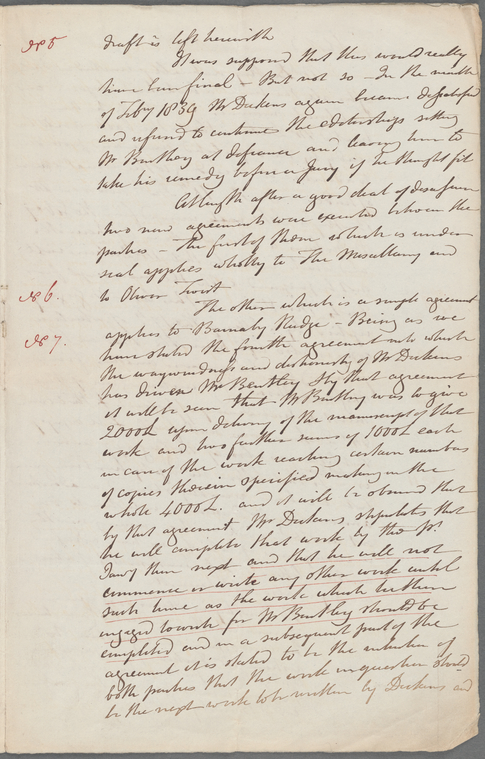 No 5
draft is left herewith
It was supposed that this would really
have been final – But not so – In the month
of Feby 1839 Mr Dickens again became dissatisfied
and refused to continue the editorship setting
Mr Bentley at defiance and leaving him to
take his remedy before a Jury if he thought fit
At length after a good deal of discussion
two new agreements were executed between the
parties – The first of them which is under
seal applies wholly to The Miscellany and
No 6.
to Oliver Twist
The other which is a simple agreement
No 7.
applies to Barnaby Rudge – Being as we
have stated the fourth agreement into which
the waywardness and dishonesty of Mr Dickens
has driven Mr Bentley By that agreement
it will be seen that Mr Bentley was to give
2000£ upon delivery of the manuscript of that
work and two further sums of 1000£ each
in case of the work reaching certain numbers
of copies therein specified making in the
whole 4000£. and it will be observed that
by that agreement Mr Dickens stipulates that
he will complete that work by the 1st
Jany then next and that he will not
commence or write any other work until
such time as the work which he then
engaged to write for Mr Bentley should be
completed and in a subsequent part of the
agreement it is stated to be the intention of
both parties that the work in question should
be the next work to be written by Dickens and